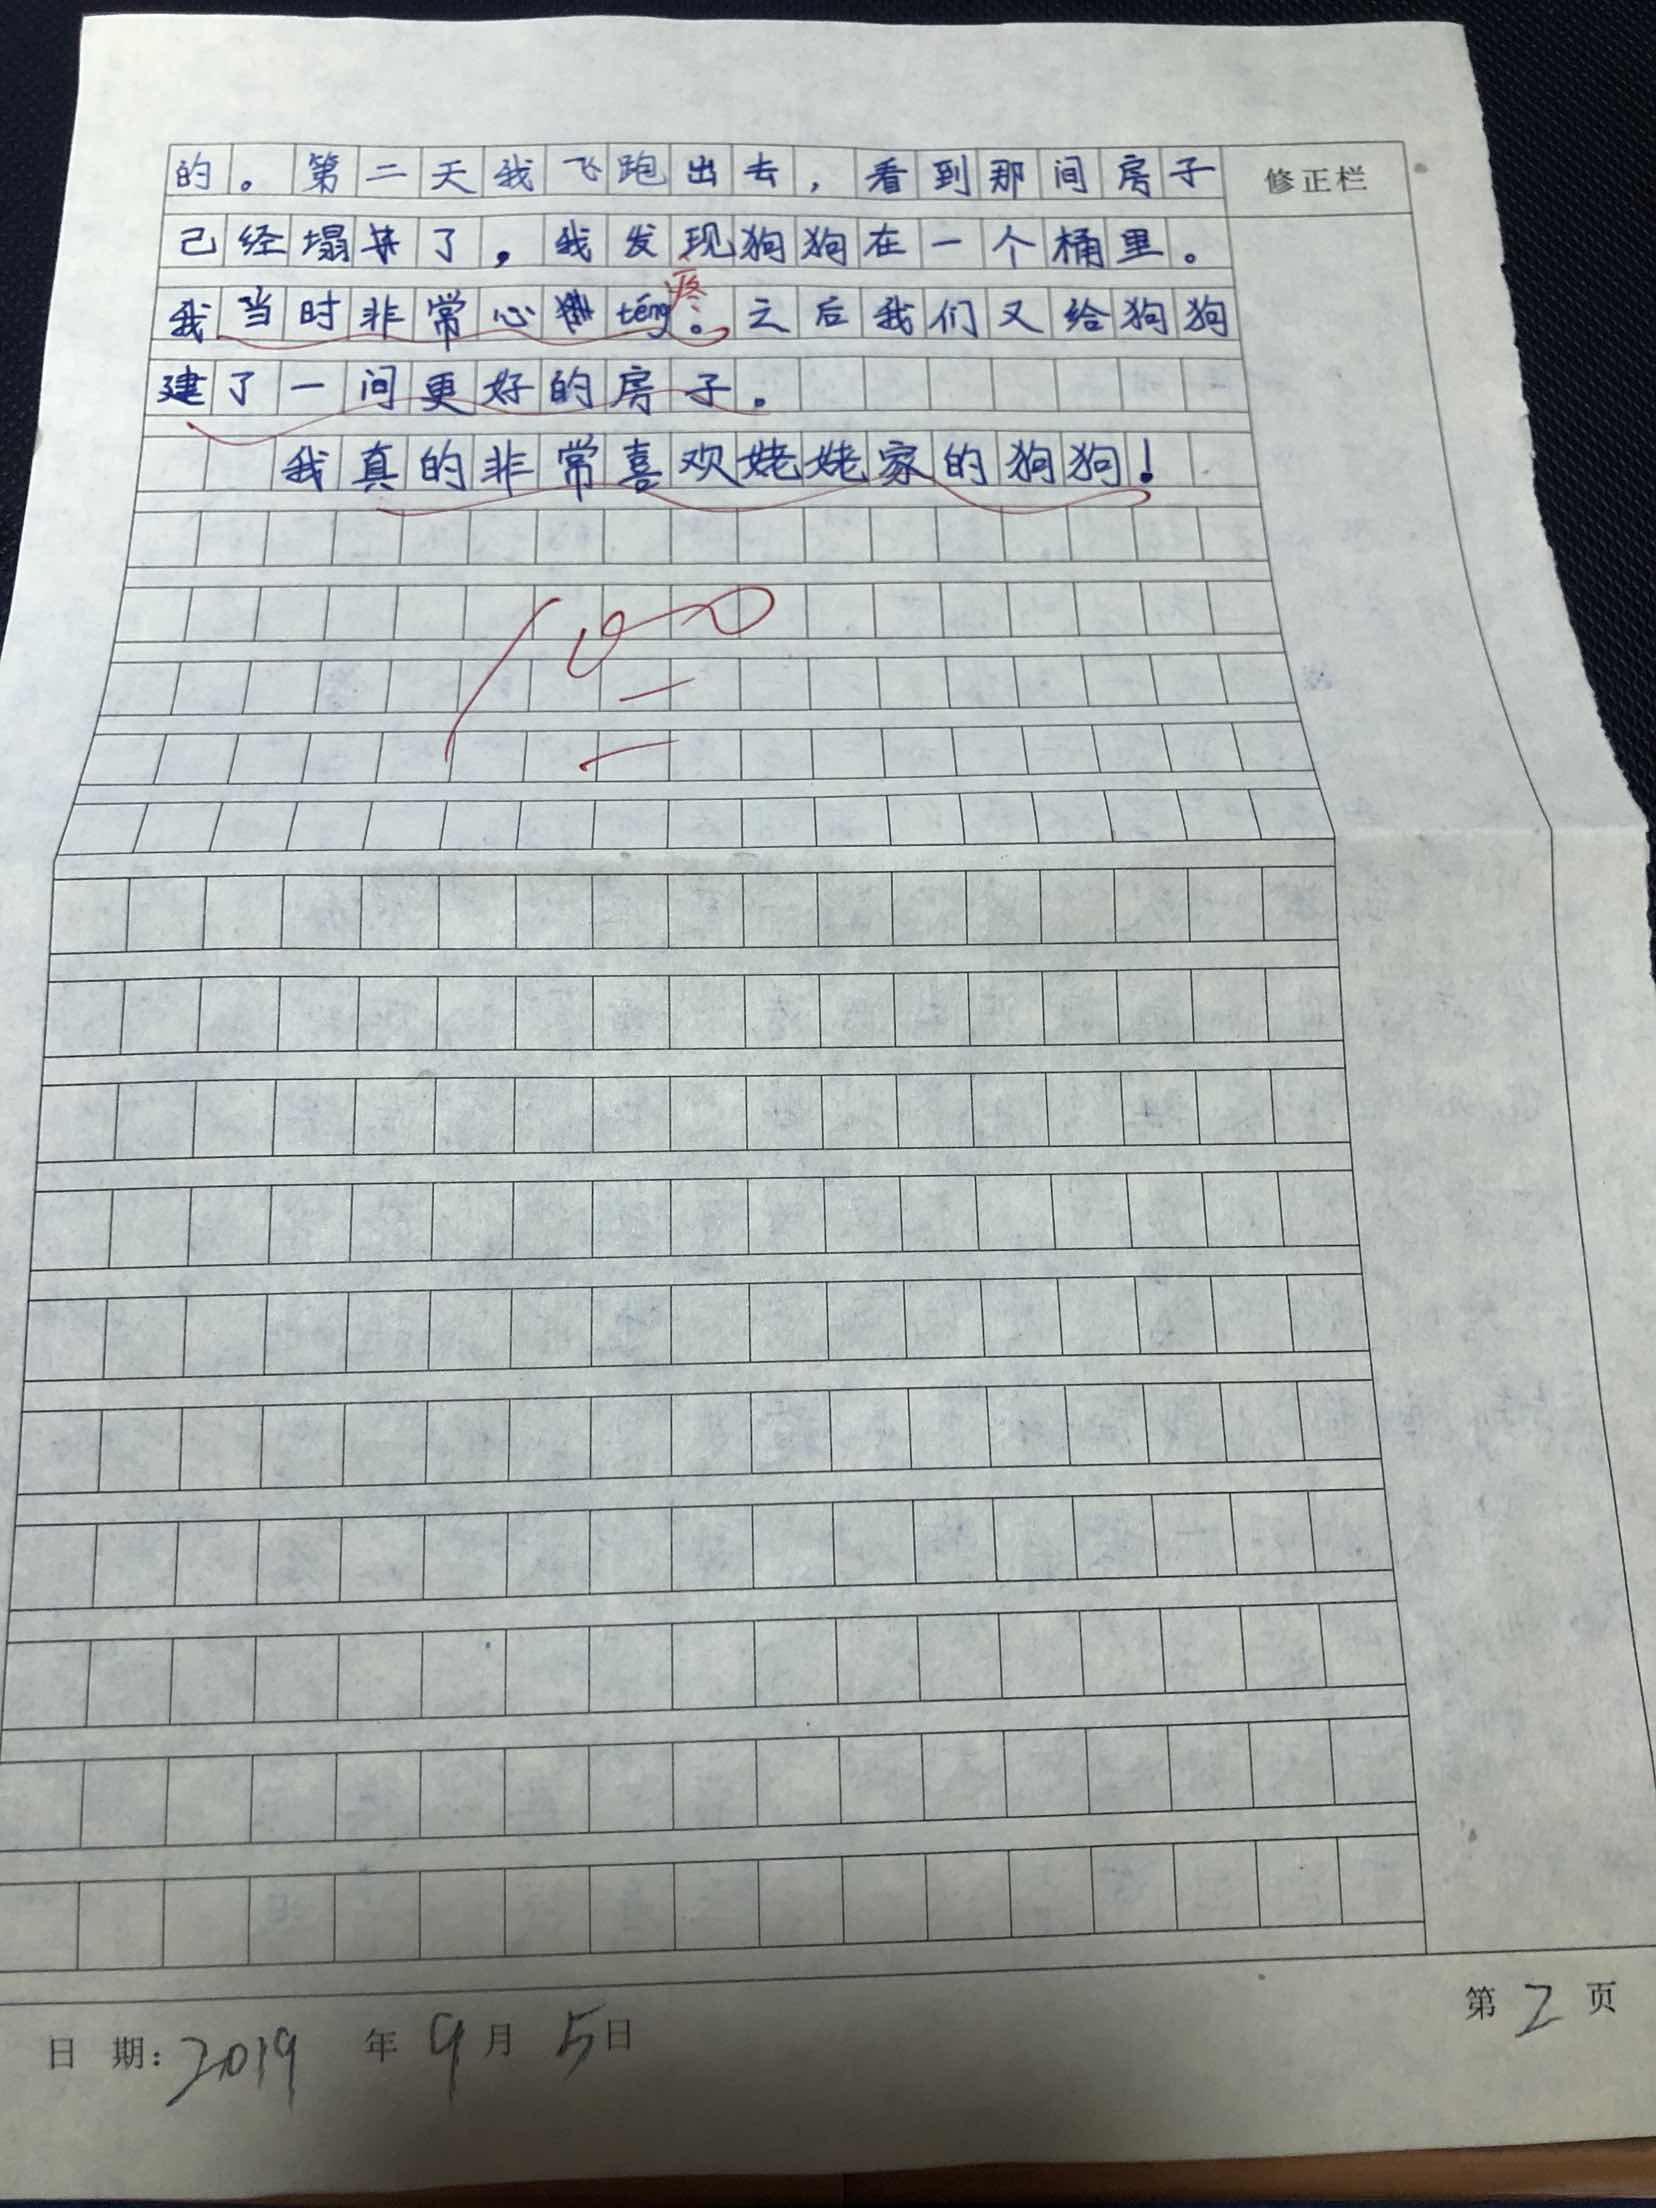 的。第二天我飞跑出去，看到那间房子
修正栏
己经塌了，我发现狗狗在一个桶里。
疼
我当时非常心téng。之后我们又给狗狗
建了一间更好的房子。
我真的非常喜欢姥姥家的狗狗！
100
日 期：2019 年 9月 5日
第 2 页